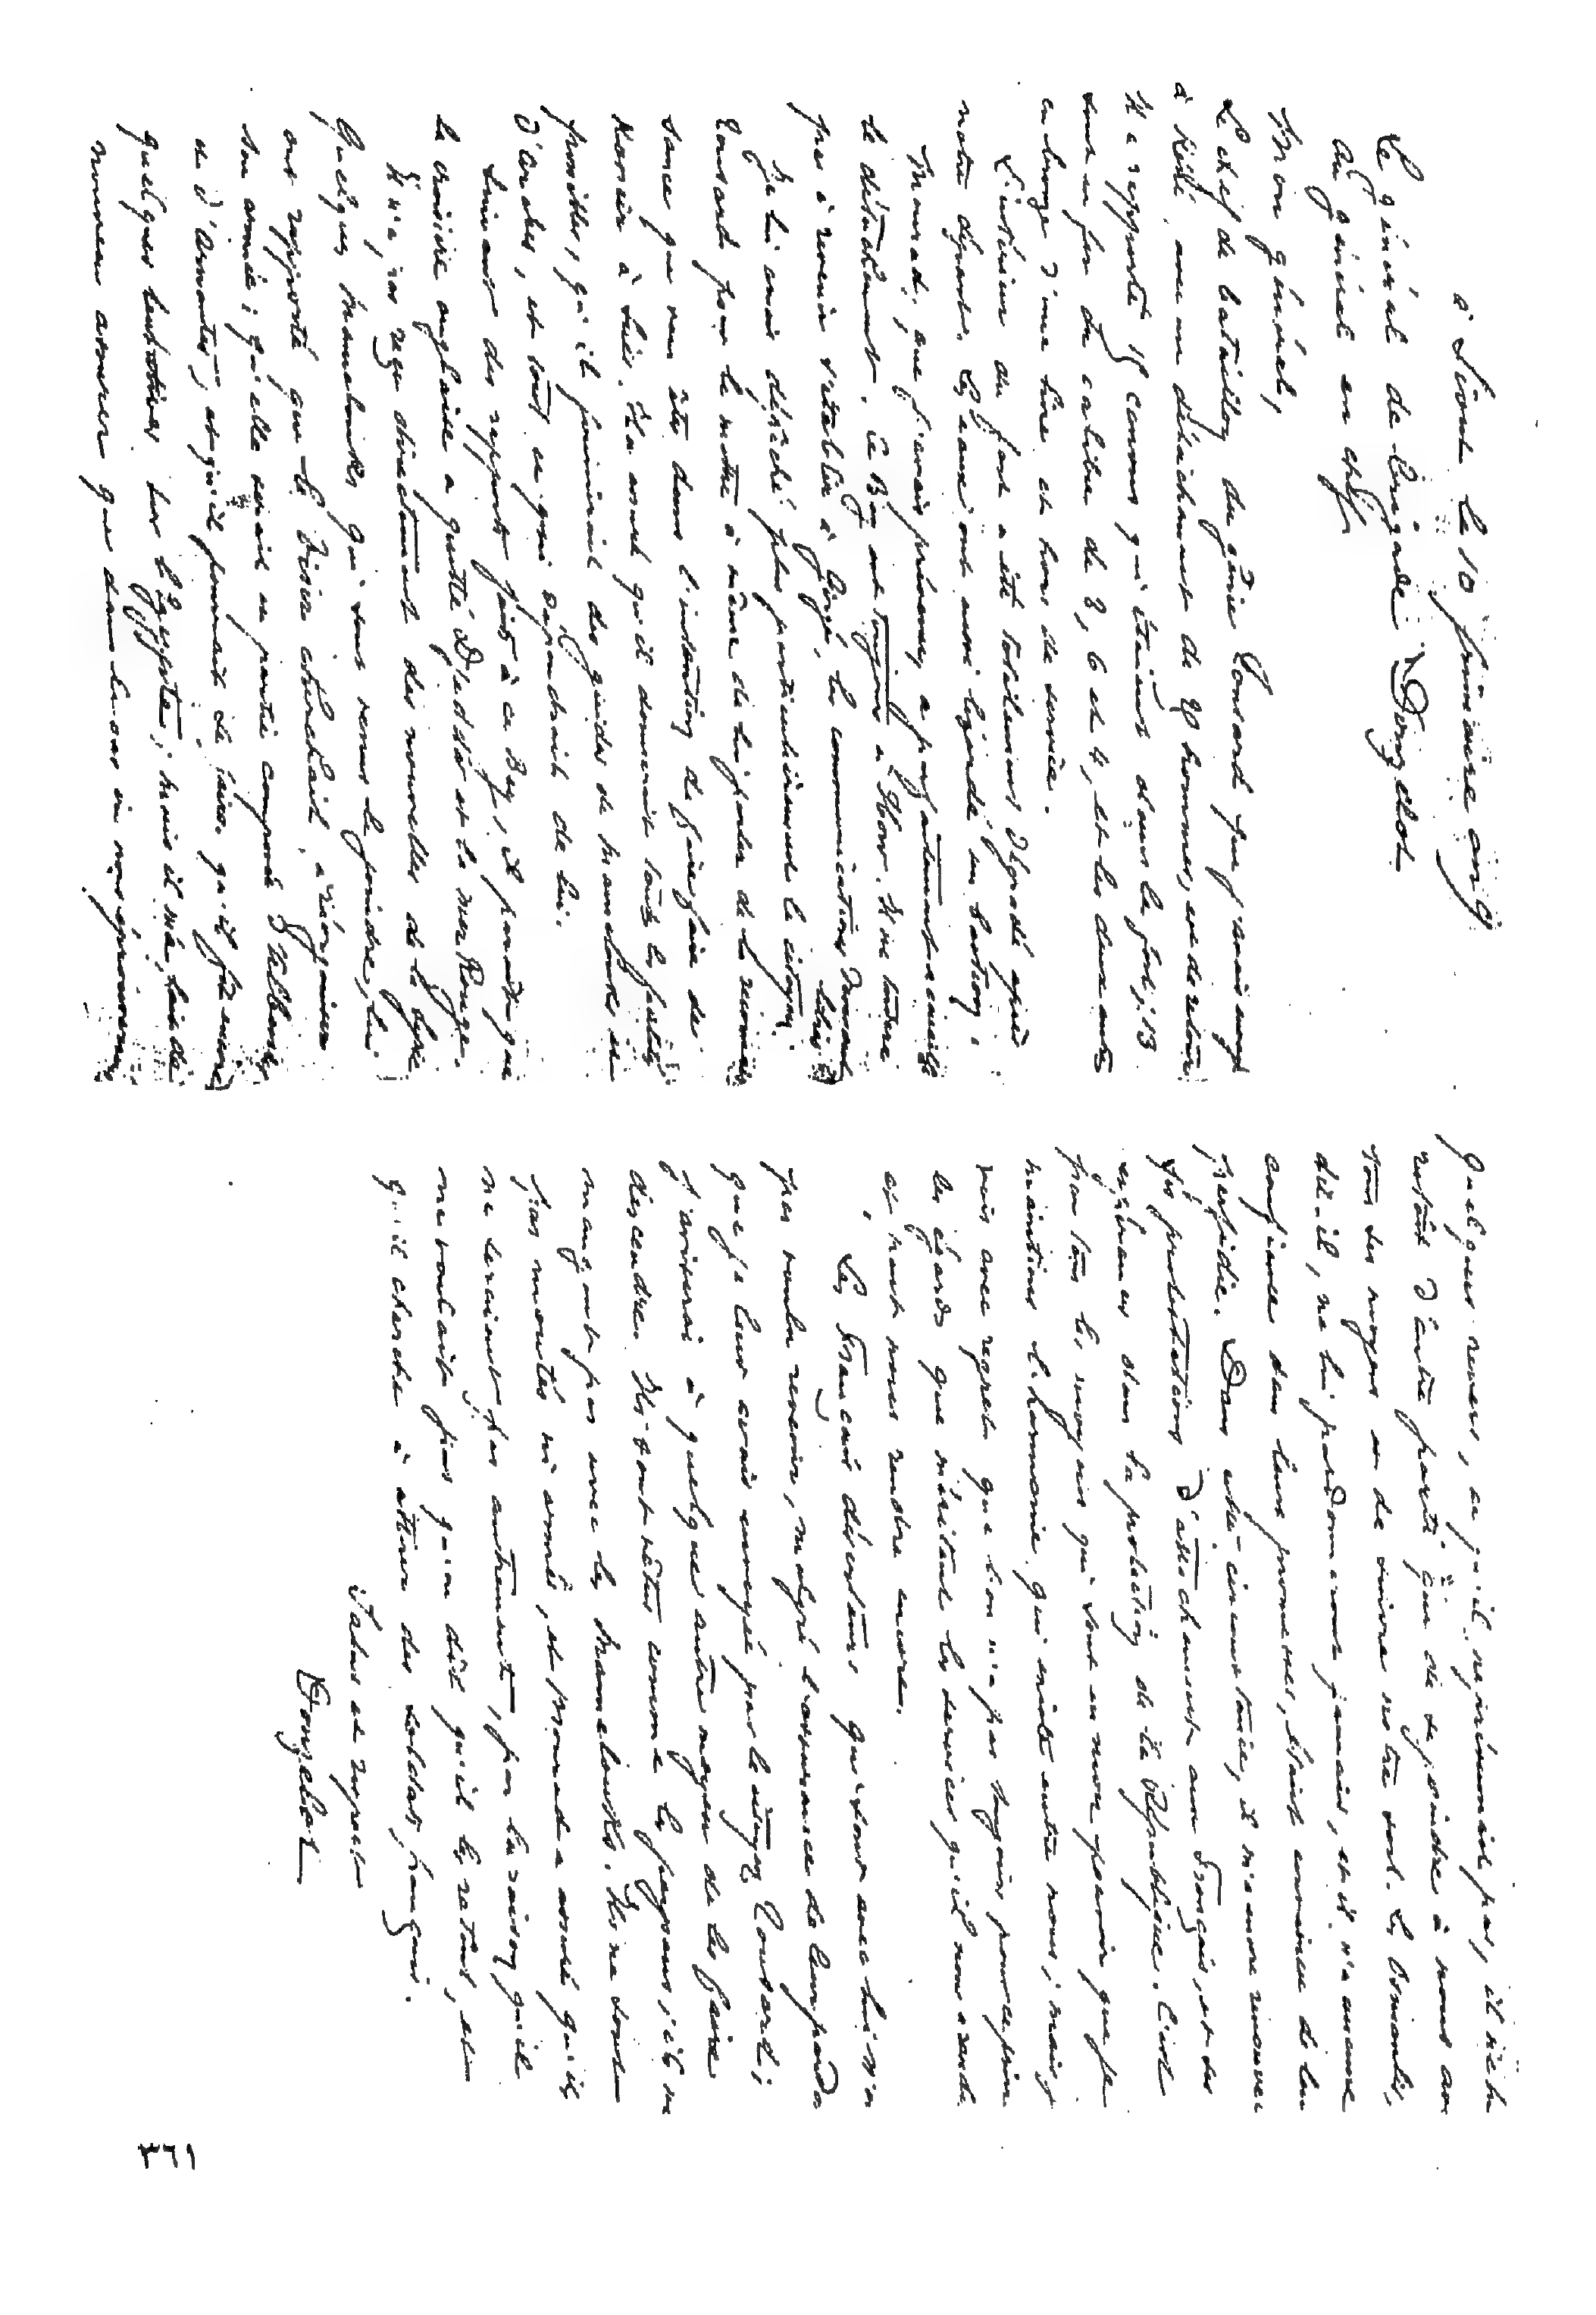 à Siout le 10 frimaire an 9
Le général de brigade Donzelot
Au général en chef
Mon général,
Le chef de bataillon du génie Consard que j'avais envoyé
à Kéné, avec un détachement de 20 hommes, est de retour
Il a rapporté 15 canons qui étaient dans le fort; 13
sont en fer du calibre de 8, 6 et 4, et les deux autres
en bronze d'une livre et hors de service.
L'intérieur du fort a été totalement dégradé après
notre départ. Les
Mourad, que j'avais prévenu, a parfaitement accueilli
le détachement. Ce Bey est toujours à
près à revenir s'établir à Girgé, les communications devenant
libres
Je lui avais dépêché plus particulièrement le citoyen
Consard pour le mettre à même de lui parler de la
sance que vous êtes dans l'intention de faire faire de
Kosseir à Suez. Il a assuré qu'il donnerait toutes les facilités
possibles, qu'il fournirait des guides de mamelouks et
d'arabes, et tout ce qui dépendrait de lui.
Suivant des rapports faits à ce Bey, il paraît que
la croisière anglaise a quitté Djedda et la mer Rouge.
Il n'a pas reçu directement des nouvelles de la Syrie
Quelques mamelouks qui sont venus le joindre, lui
ont rapporté que le Visir cherchait à réorganiser
son armée; qu'elle serait en partie composée d'albanais
et d'arnautes, et qu'il pourrait se faire qu'il fît encore
quelques tentatives sur l'Egypte; mais il m'a, dit-il
nouveau assurer que dans le cas où nous éprouverions
quelques revers, ce qu'il ne présumait pas, il n'était
restait d'autre parti que de se joindre à nous avec
tous ses moyens et de suivre notre sort. Les Osmanlis,
dit-il, ne lui pardonneront jamais, et il n'a aucune
confiance dans leurs promesses, étant convaincu de leur
perfidie. Dans cette circonstance, il m'a encore renouvelé
ses protestations d'attachement aux Français, et ses
espérances dans la protection de la République. C'est
par tous les moyens qui sont en mon pouvoir que je
maintiens l'harmonie qui existe entre nous; mais je
vois avec regret que l'on n'a pas toujours pour ce prince
les égards que méritent les services qu'il nous a rendus
et peut nous rendre encore.
Les Français déserteurs qui sont avec lui n'ont
pas voulu revenir, malgré l'assurance de leur pardon
que je leur avais envoyé par le citoyen Consard;
j'aviserai à quelque autre moyen de les faire
descendre. Ils sont vêtus comme les paysans; ils ne
mangent pas avec les mamelouks. Ils ne sont
pas montés ni armés, et Mourad a assuré qu'ils
ne seraient pas autrement, par la raison qu'il
ne voulait pas qu'on dît qu'il les retient, et
qu'il cherche à attirer des soldats français.
Salut et respect
Donzelot